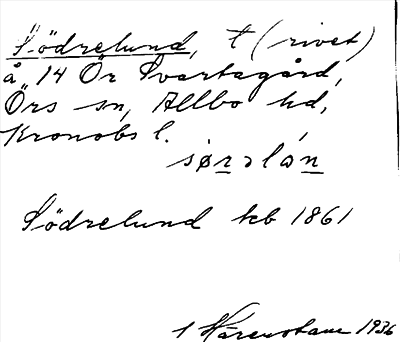 Södrelund, t (rivet)
å 14 Ör Svartagård,
Örs sn, Allbo hd,
Kronobs l.
sø̀rəlán
Södrelund kb 1861
1 Härenstam 1936